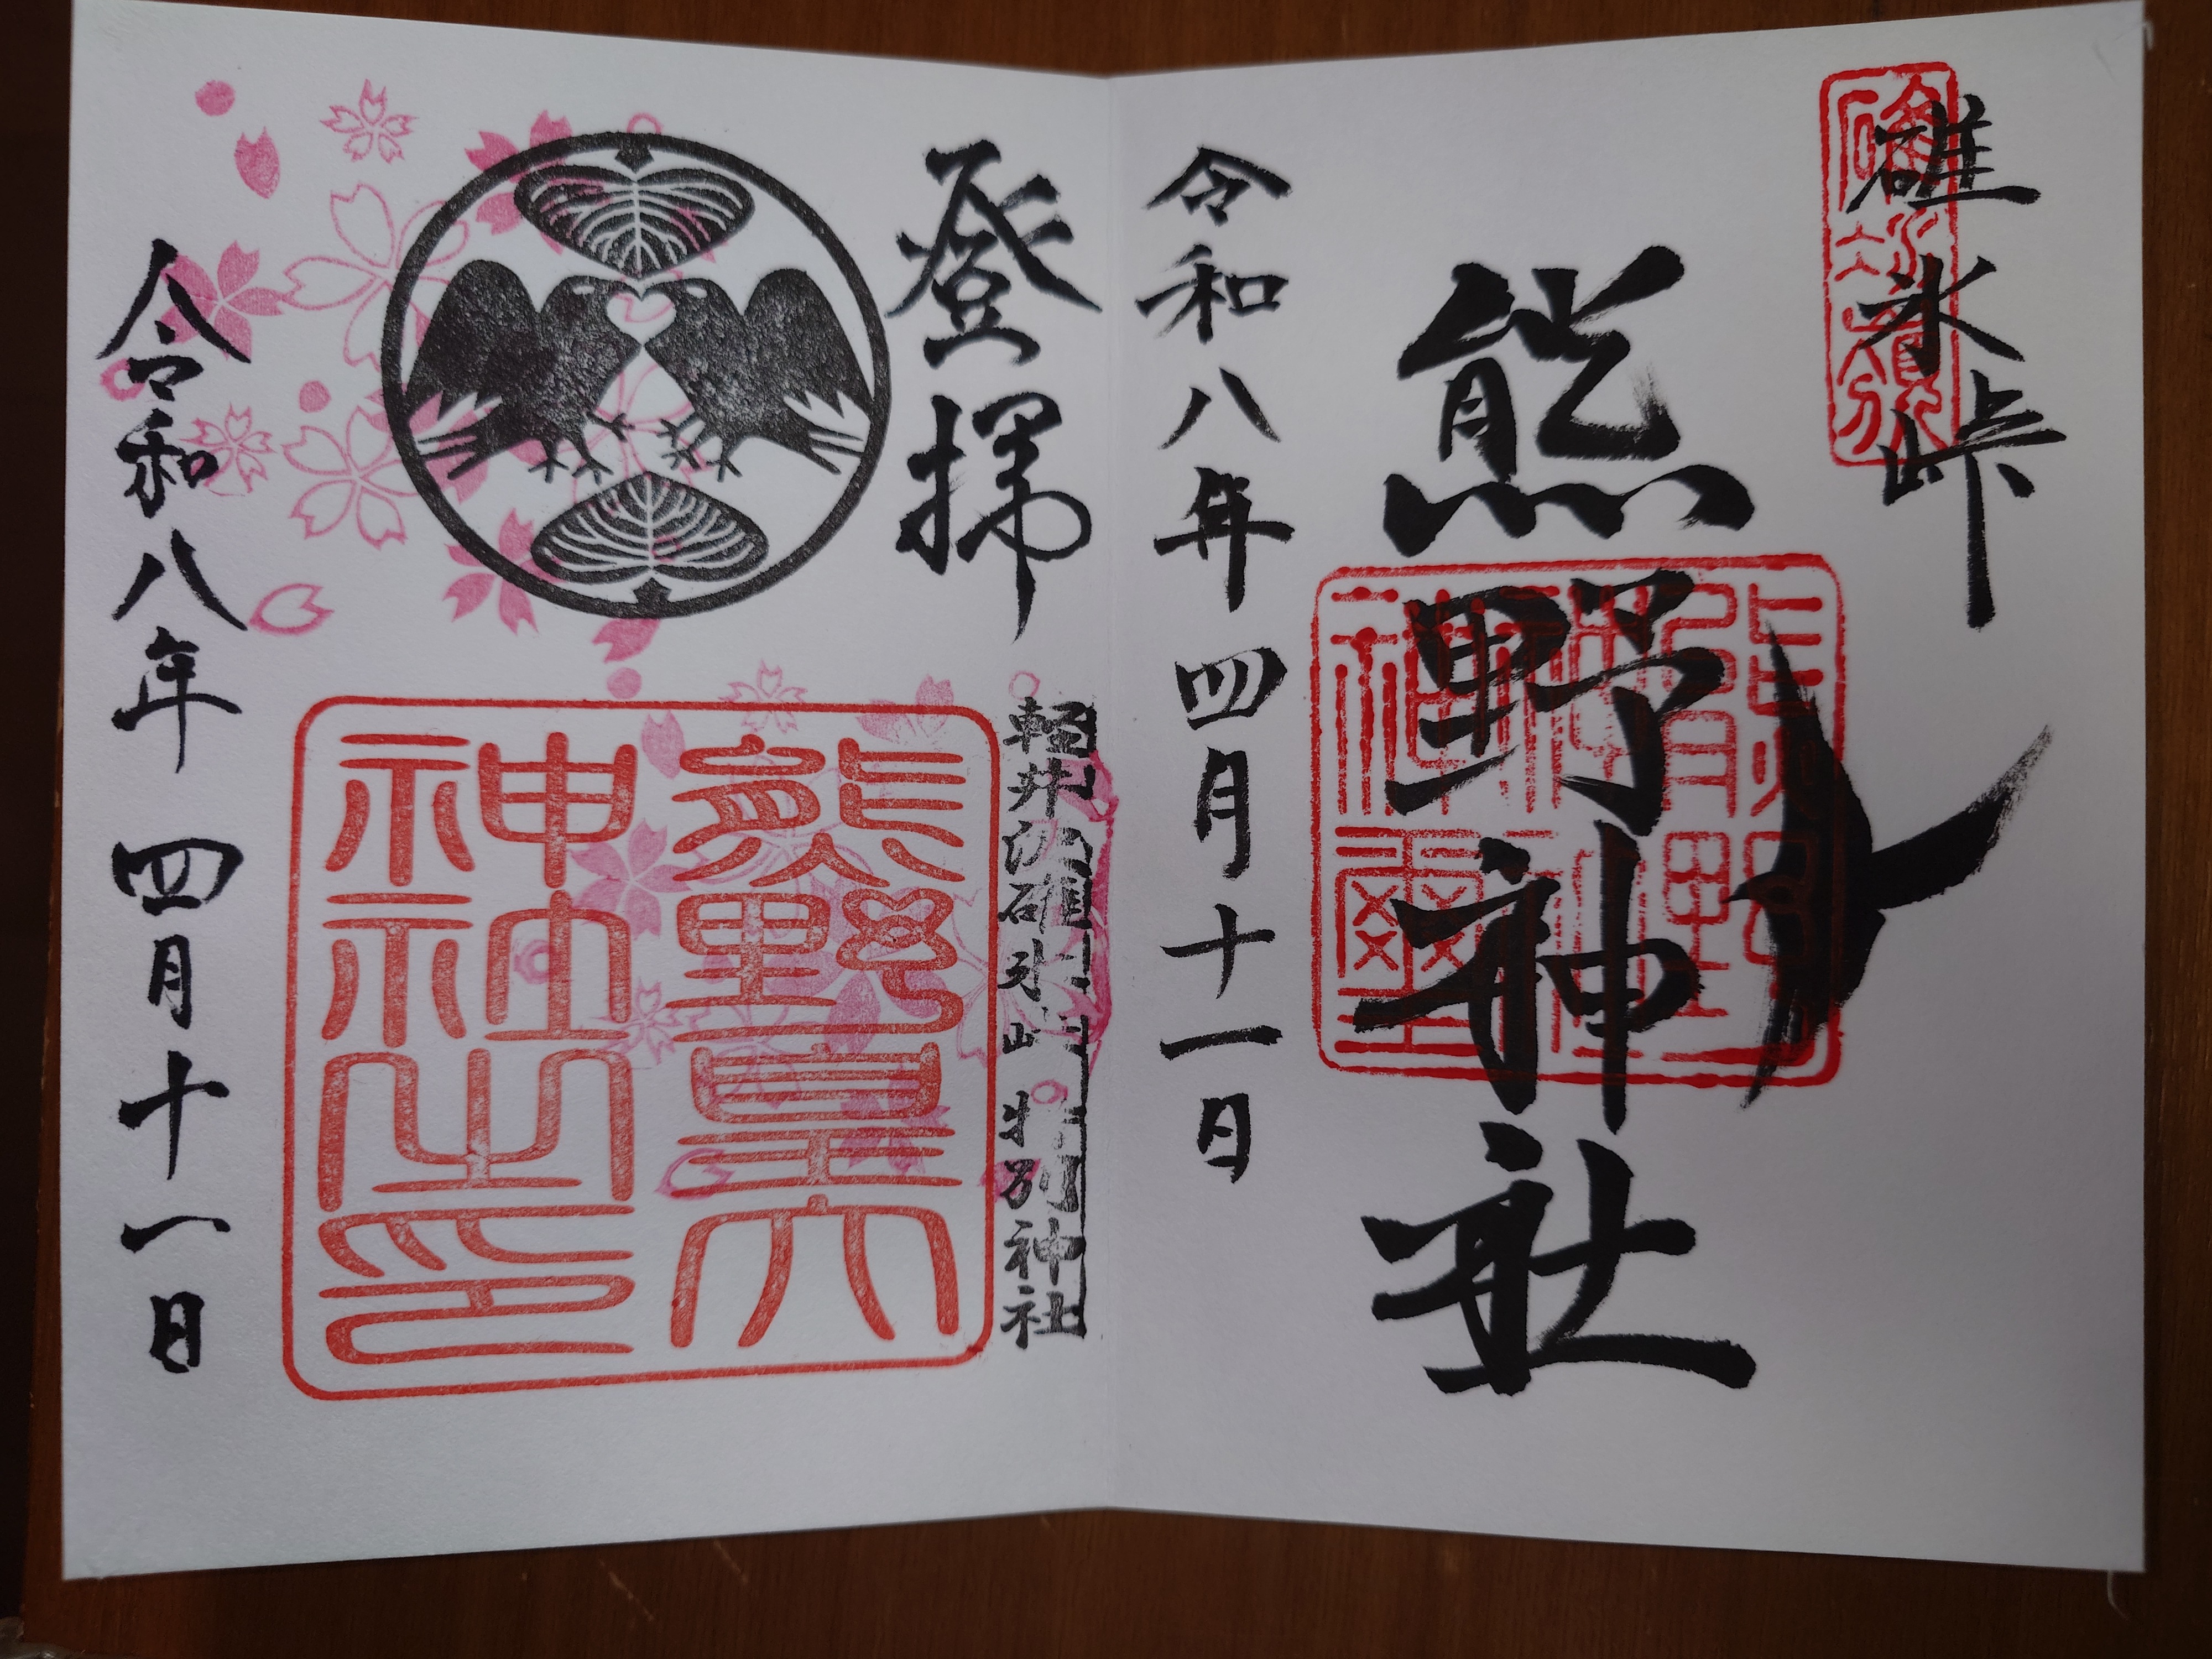 碓氷峠
熊野神社
令和八年四月十一日
登拝
軽井沢碓氷峠 特別神社
熊野皇大
神社之印
令和八年四月十一日